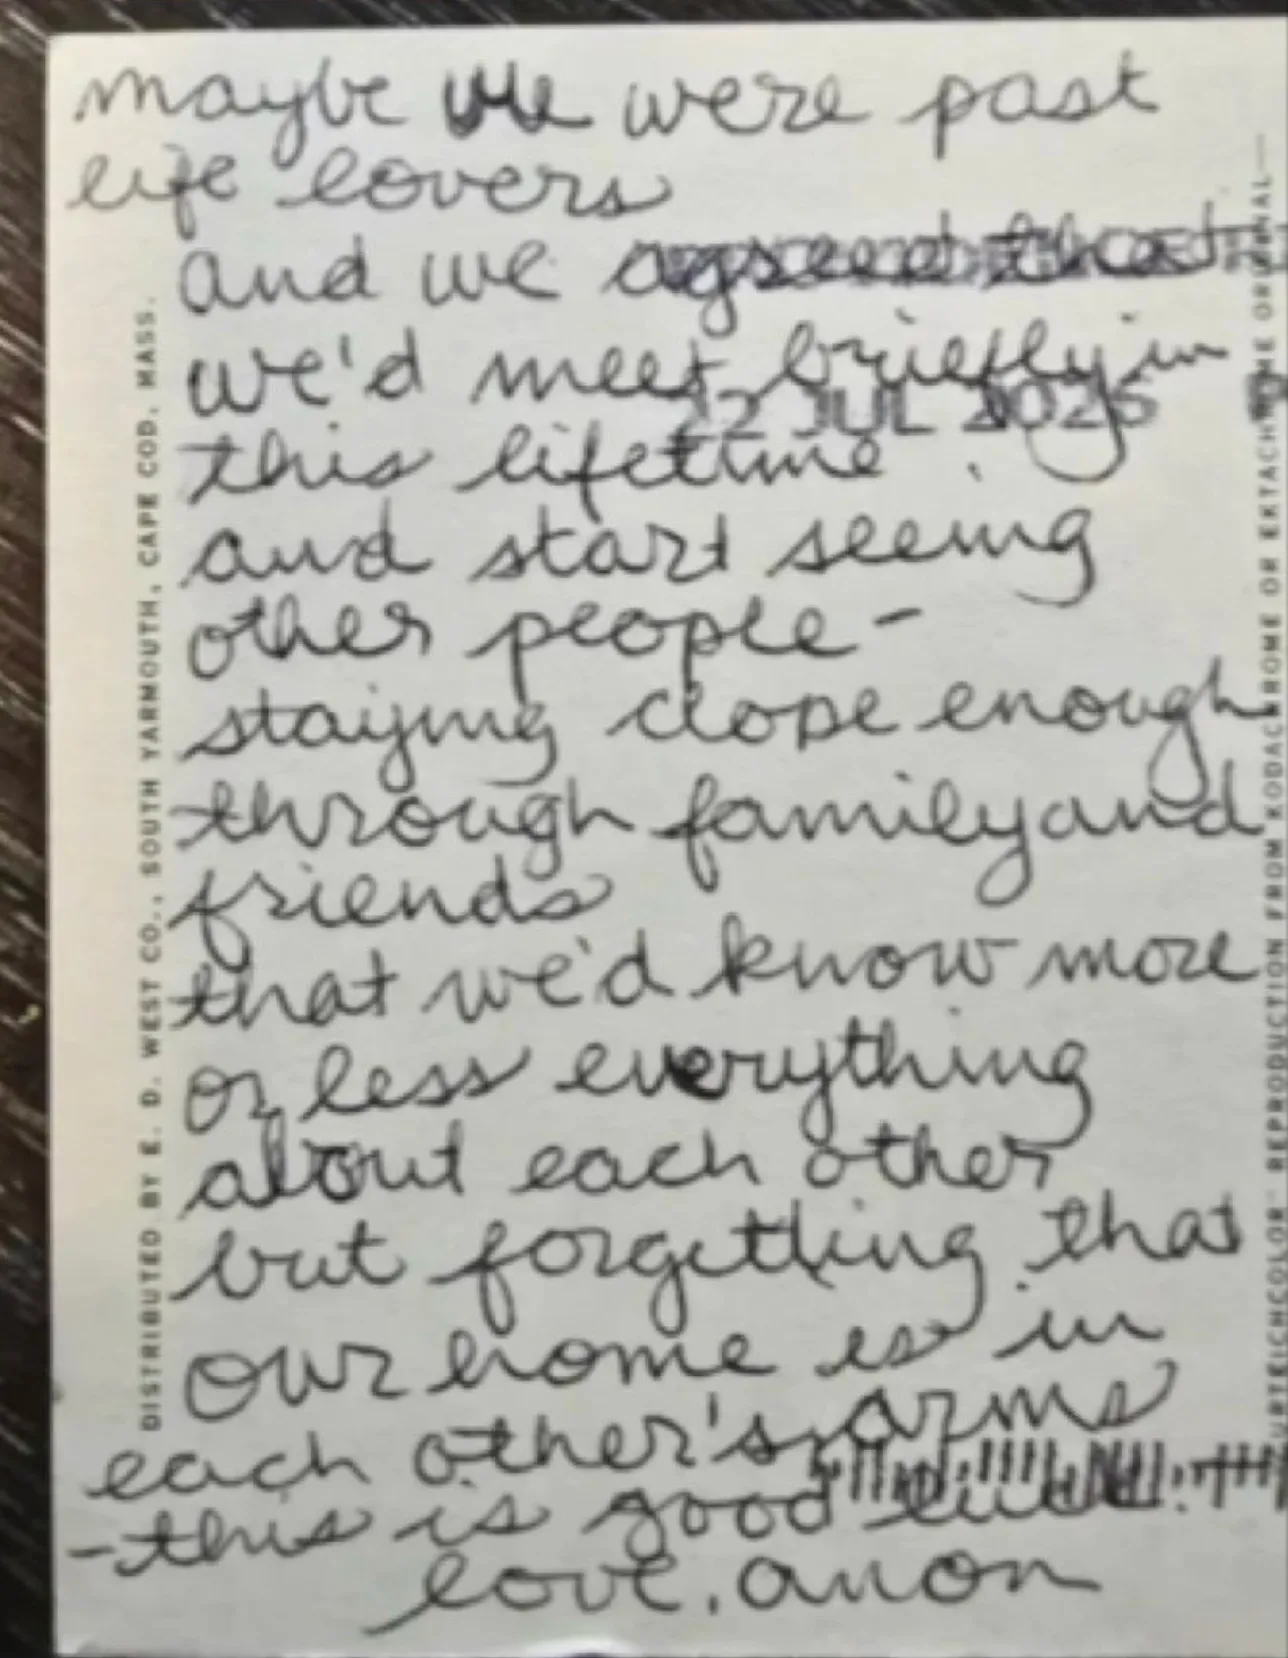 maybe we were past
life lovers
and we agreed that
we'd meet briefly in
22 JUL 2025
this lifetime.
and start seeing
other people -
staying close enough
through family and
friends
that we'd know more
or less everything
about each other
but forgetting that
our home is in
each other's arms
- this is good
love, anon
DISTRIBUTED BY E. D. WEST CO., SOUTH YARMOUTH, CAPE COD, MASS.
REPRODUCTION FROM KODACHROME OR EKTACHROME ORIGINAL